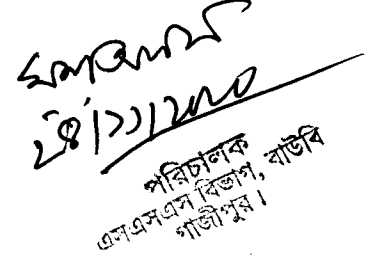 ২৪/১১/২০১০
পরিচালক
এসএসএস বিভাগ, বাউবি
গাজীপুর।